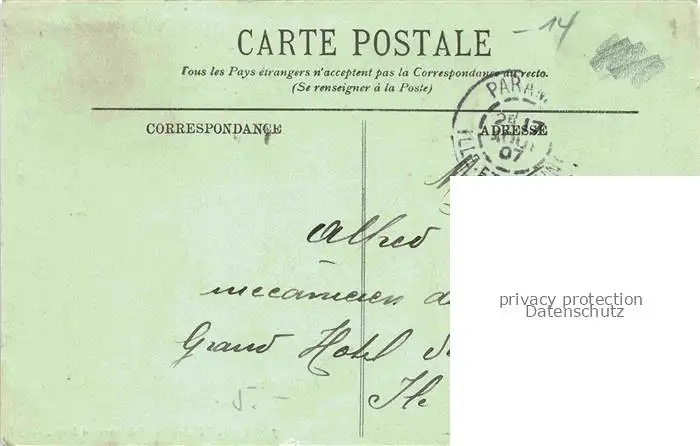 -14
CARTE POSTALE
Tous les Pays étrangers n'acceptent pas la Correspondance au recto.
(Se renseigner à la Poste)
PARAM
CORRESPONDANCE
ADRESSE
AOUT
07
Alfred
mécanicien
Grand Hotel
Ile
5.-
privacy protection
Datenschutz